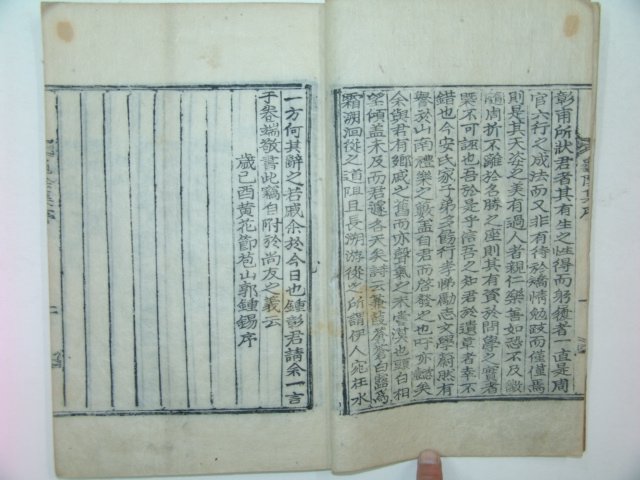 彰甫所狀君者其有生之性得而躬獲者一直是周
官六行之成法而又非有待於矯情勉跂而僅僅焉
則是其天姿之美有過人者親仁樂善如恐不及緻
隨周折不離於名勝之座則其有資於問學之實者
槩不可誣也吾於是乎信吾之知君於遺章者幸不
錯也今安氏家子弟多飭行孝悌勵志文學蔚然有
譽於山南禮樂之藪蓋自君而啓發之也吁亦懿矣
余與君有鄕戚之舊而亦聲氣之未嘗漠也頭白相
望傾盖未及而君遽各天矣詩云蒹葭蒼蒼白露爲
霜溯洄從之道阻且長溯游從之所謂伊人宛在水
一方何其辭之若戚余於今日也鍾彭君請余一言
于卷端敬書此竊自附於尚友之義云
歲己酉黃花節苞山郭鍾錫序